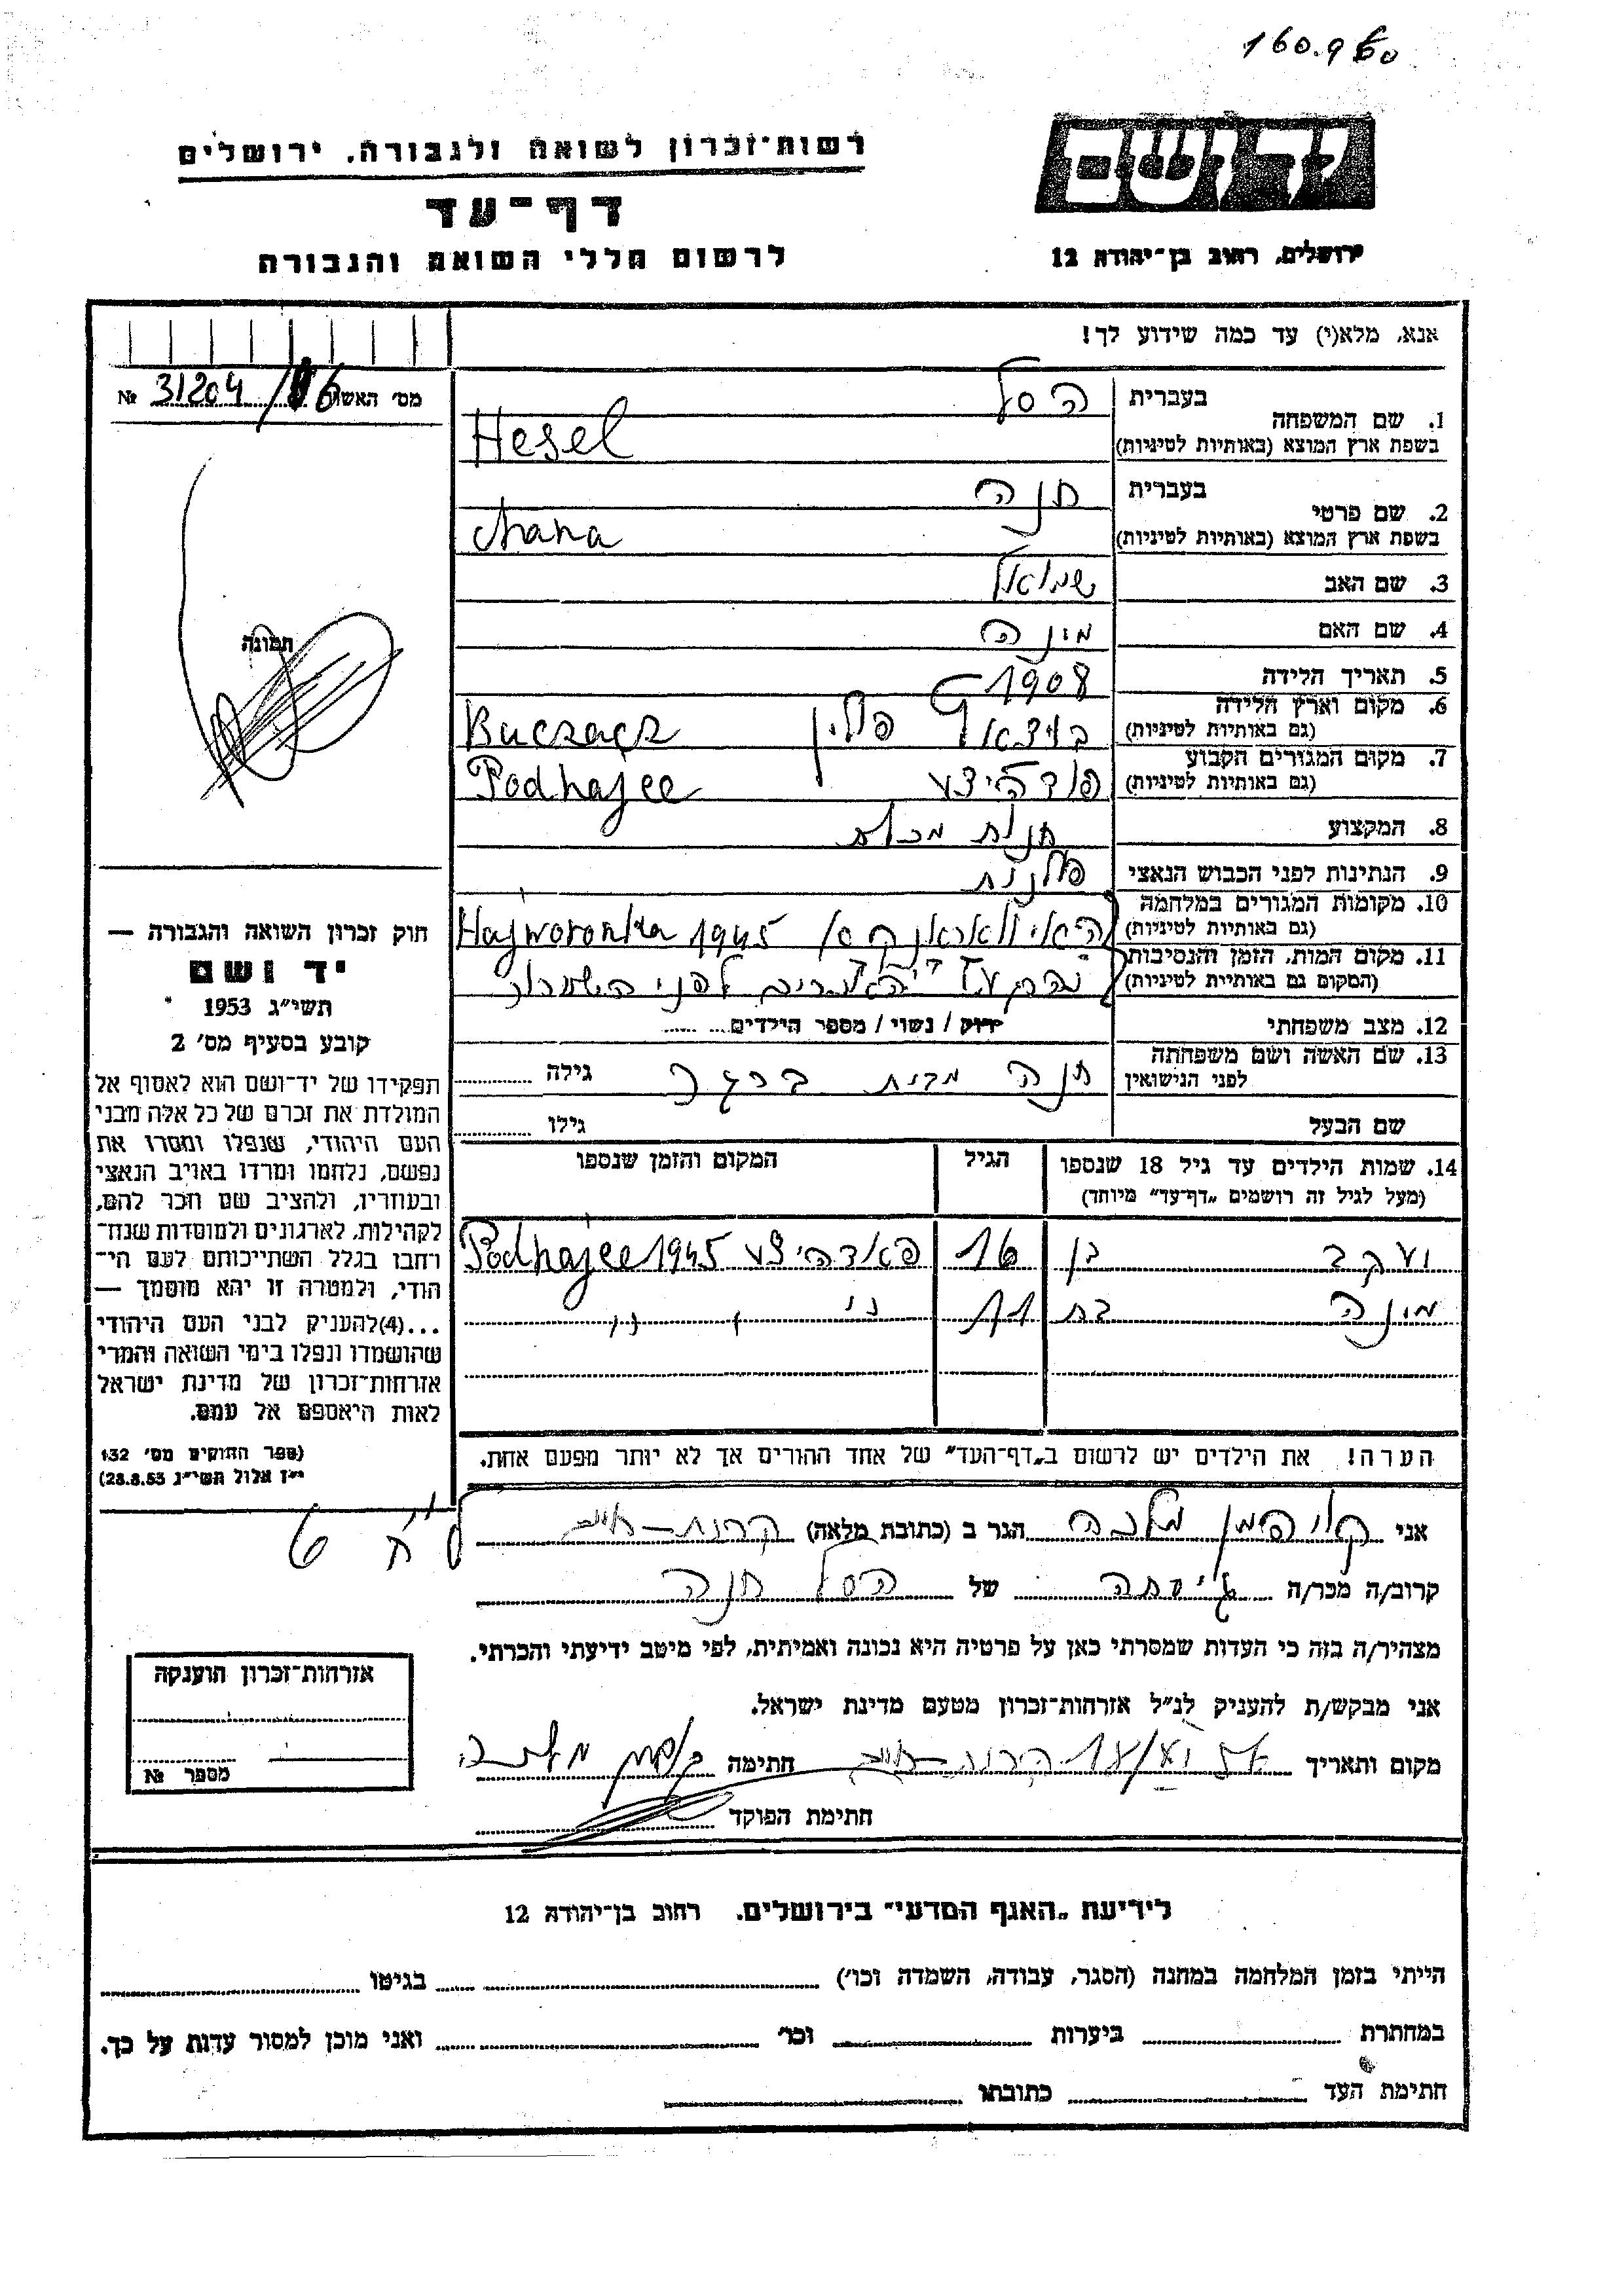 160.960
רשות־זכרון לשואה ולגבורה. ירושלים
יד ושם
דף־עד
לרשום חללי השואה והגבורה
ירושלים, רחוב בן־יהודה 12
אנא, מלא(י) עד כמה שידוע לך!
מס׳ האשה № 31204/16
1. שם המשפחה
בעברית הסל
בשפת ארץ המוצא (באותיות לטיניות) Hesel
2. שם פרטי
בעברית חנה
בשפת ארץ המוצא (באותיות לטיניות) Chana
3. שם האב שמואל
4. שם האם מינה
5. תאריך הלידה 1908
6. מקום וארץ הלידה (גם באותיות לטיניות) פולין Buczacz
7. מקום המגורים הקבוע (גם באותיות לטיניות) פודהיצע Podhajce
8. המקצוע חנות מכולת
9. הנתינות לפני הכבוש הנאצי פולנית
10. מקומות המגורים במלחמה (גם באותיות לטיניות) Hajworonka 1945
11. מקום המות, הזמן והנסיבות (המקום גם באותיות לטיניות) לפני השחרור
12. מצב משפחתי רווק / נשוי / מספר הילדים
13. שם האשה ושם משפחתה לפני הנישואין חנה מבית ברגר גילה
שם הבעל גילו
14. שמות הילדים עד גיל 18 שנספו (מעל לגיל זה רושמים „דף־עד״ מיוחד) הגיל המקום והזמן שנספו
יעקב בן 16 פאדהיצע Podhajce 1945
מינה בת 11 " " "
הערה! את הילדים יש לרשום ב„דף־העד״ של אחד ההורים אך לא יותר מפעם אחת.
תמונה
חוק זכרון השואה והגבורה —
יד ושם
תשי״ג 1953
קובע בסעיף מס׳ 2
תפקידו של יד־ושם הוא לאסוף אל
המולדת את זכרם של כל אלה מבני
העם היהודי, שנפלו ומסרו את
נפשם, נלחמו ומרדו באויב הנאצי
ובעוזריו, ולהציב שם וזכר להם,
לקהילות, לארגונים ולמוסדות שנח־
רחבו בגלל השתייכותם לעם הי־
הודי, ולמטרה זו יהא מוסמך —
...(4)להעניק לבני העם היהודי
שהושמדו ונפלו בימי השואה והמרי
אזרחות־זכרון של מדינת ישראל
לאות היאספם אל עמם.
(ספר החוקים מס׳ 132
י״ז אלול תשי״ג 28.8.53)
אני קויפמן מלכה הגר ב (כתובת מלאה) קרית־חיים
קרוב/ה מכר/ה גיסתה של הסל חנה
מצהיר/ה בזה כי העדות שמסרתי כאן על פרטיה היא נכונה ואמיתית, לפי מיטב ידיעתי והכרתי.
אני מבקש/ת להעניק לנ״ל אזרחות־זכרון מטעם מדינת ישראל.
מקום ותאריך קרית־חיים חתימה
חתימת הפוקד
אזרחות־זכרון הוענקה
מספר №
לידיעת „האגף המדעי״ בירושלים. רחוב בן־יהודה 12
הייתי בזמן המלחמה במחנה (הסגר, עבודה, השמדה וכו׳) בגיטו
במחתרת ביערות וכו׳ ואני מוכן למסור עדות על כך.
חתימת העד כתובתו